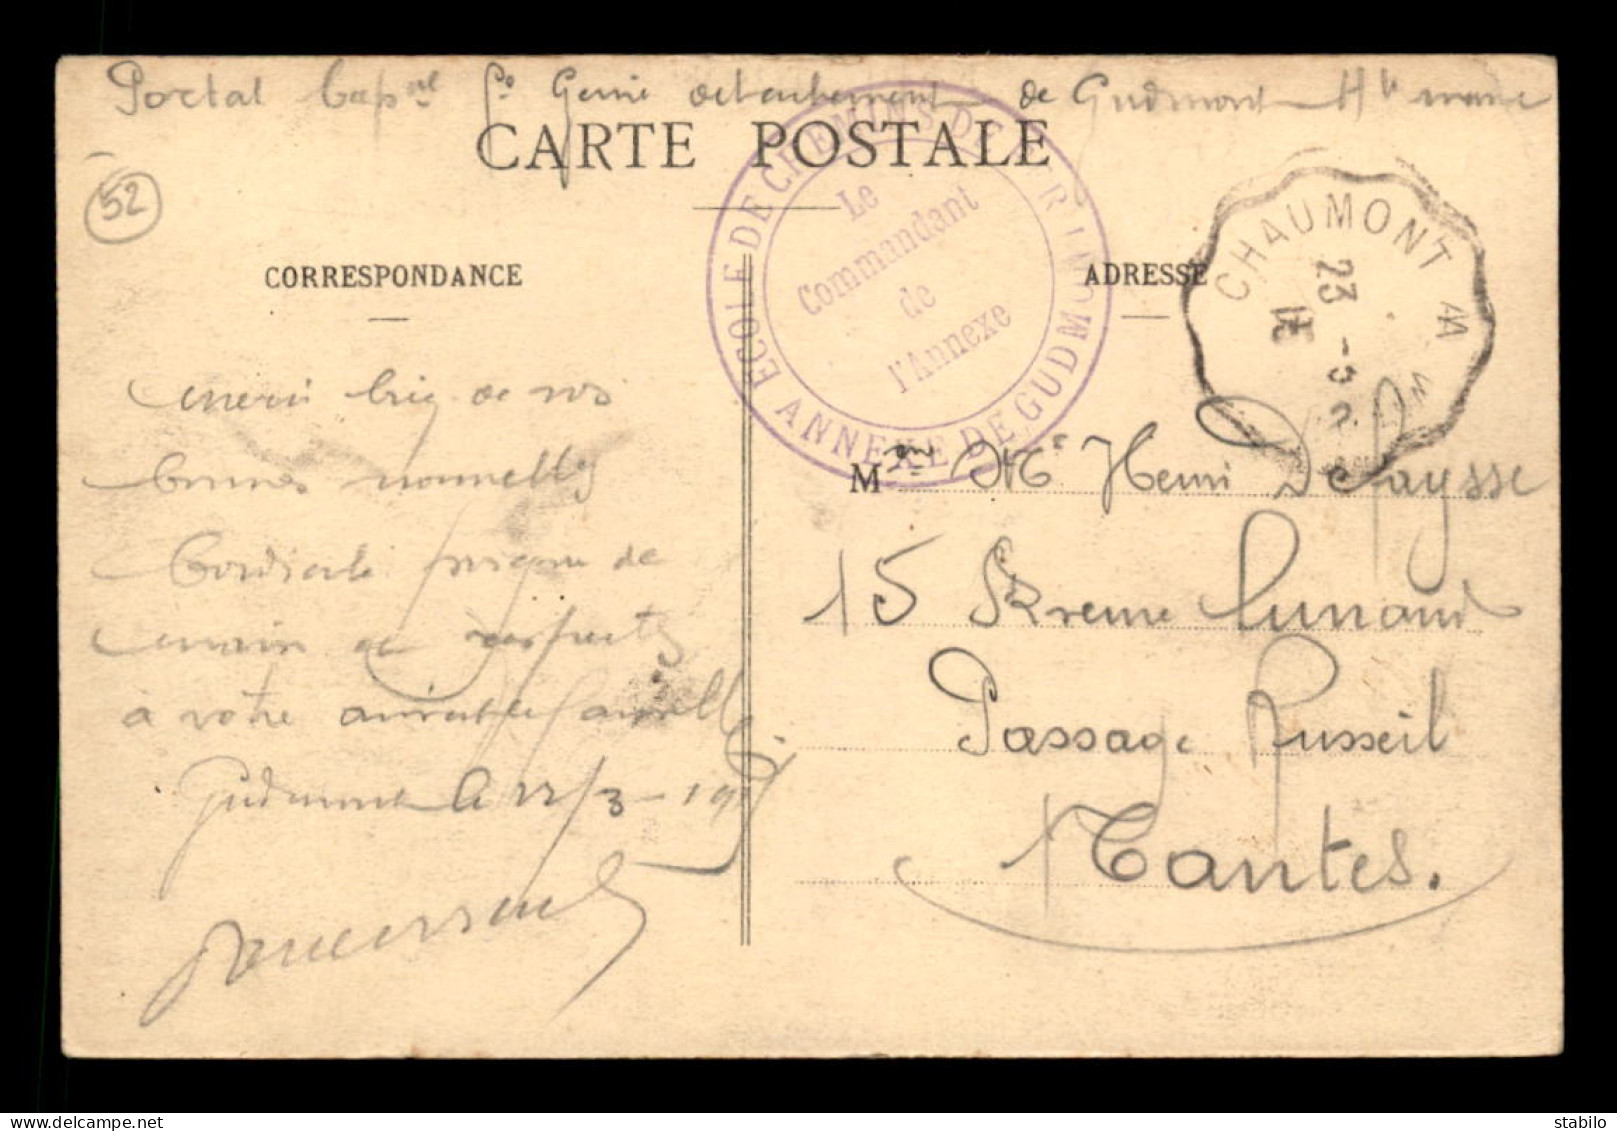 Portal Cap^al 5e Genie detachement de Gudmont Hte marne
CARTE POSTALE
52
ECOLE DE CHEMINS DE FER
ANNEXE DE GUDMONT
Le
Commandant
de
l'Annexe
CHAUMONT
23 -3
15
CORRESPONDANCE
ADRESSE
merci de vos
bonnes nouvelles
Cordiale poignée de
main et respects
à votre aimable famille
Gudmont le 22/3-191
M me Henri Delpaysse
15
Passage Russeil
Nantes.
delcampe.net
stabilo